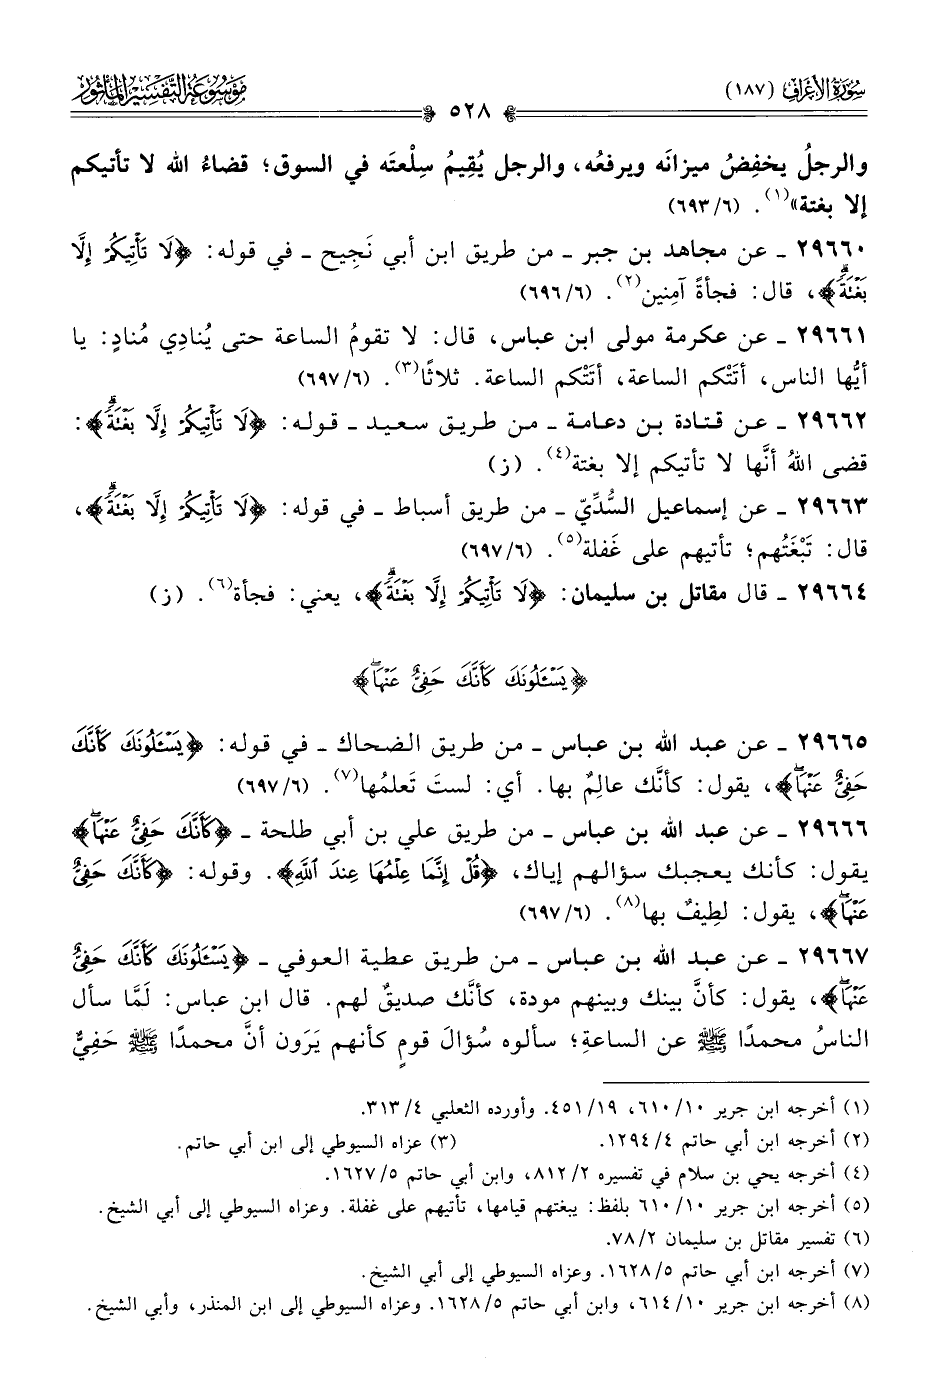 سُورَةُ الأَعْرَافِ (١٨٧)
موسوعة التفسير المأثور
٥٢٨
والرجلُ يخفِضُ ميزانَه ويرفعُه، والرجل يُقِيمُ سِلْعتَه في السوق؛ قضاءُ الله لا تأتيكم
إلا بغتة»(١). (٦٩٣/٦)
٢٩٦٦٠ ـ عن مجاهد بن جبر ـ من طريق ابن أبي نَجِيح ـ في قوله: ﴿لَا تَأْتِيكُمْ إِلَّا
بَغْتَةً﴾، قال: فجأةً آمِنين(٢). (٦٩٦/٦)
٢٩٦٦١ ـ عن عكرمة مولى ابن عباس، قال: لا تقومُ الساعة حتى يُنادِي مُنادٍ: يا
أيُّها الناس، أتَتْكم الساعة، أتَتْكم الساعة. ثلاثًا(٣). (٦٩٧/٦)
٢٩٦٦٢ ـ عن قتادة بن دعامة ـ من طريق سعيد ـ قوله: ﴿لَا تَأْتِيكُمْ إِلَّا بَغْتَةً﴾:
قضى اللهُ أنَّها لا تأتيكم إلا بغتة(٤). (ز)
٢٩٦٦٣ ـ عن إسماعيل السُّدِّيّ ـ من طريق أسباط ـ في قوله: ﴿لَا تَأْتِيكُمْ إِلَّا بَغْتَةً﴾،
قال: تَبْغَتُهم؛ تأتيهم على غَفلة(٥). (٦٩٧/٦)
٢٩٦٦٤ ـ قال مقاتل بن سليمان: ﴿لَا تَأْتِيكُمْ إِلَّا بَغْتَةً﴾، يعني: فجأة(٦). (ز)
﴿يَسْـَٔلُونَكَ كَأَنَّكَ حَفِيٌّ عَنْهَا﴾
٢٩٦٦٥ ـ عن عبد الله بن عباس ـ من طريق الضحاك ـ في قوله: ﴿يَسْـَٔلُونَكَ كَأَنَّكَ
حَفِيٌّ عَنْهَا﴾، يقول: كأنَّك عالِمٌ بها. أي: لستَ تَعلمُها(٧). (٦٩٧/٦)
٢٩٦٦٦ ـ عن عبد الله بن عباس ـ من طريق علي بن أبي طلحة ـ ﴿كَأَنَّكَ حَفِيٌّ عَنْهَا﴾
يقول: كأنك يعجبك سؤالهم إياك، ﴿قُلْ إِنَّمَا عِلْمُهَا عِندَ ٱللَّهِ﴾. وقوله: ﴿كَأَنَّكَ حَفِيٌّ
عَنْهَا﴾، يقول: لطِيفٌ بها(٨). (٦٩٧/٦)
٢٩٦٦٧ ـ عن عبد الله بن عباس ـ من طريق عطية العوفي ـ ﴿يَسْـَٔلُونَكَ كَأَنَّكَ حَفِيٌّ
عَنْهَا﴾، يقول: كأنَّ بينك وبينهم مودة، كأنَّك صديقٌ لهم. قال ابن عباس: لَمَّا سأل
الناسُ محمدًا ﷺ عن الساعةِ؛ سألوه سُؤالَ قومٍ كأنهم يَرَون أنَّ محمدًا ﷺ حَفِيٌّ
(١) أخرجه ابن جرير ٦١٠/١٠، ٤٥١/١٩. وأورده الثعلبي ٣١٣/٤.
(٢) أخرجه ابن أبي حاتم ١٢٩٤/٤. (٣) عزاه السيوطي إلى ابن أبي حاتم.
(٤) أخرجه يحي بن سلام في تفسيره ٨١٢/٢، وابن أبي حاتم ١٦٢٧/٥.
(٥) أخرجه ابن جرير ٦١٠/١٠ بلفظ: يبغتهم قيامها، تأتيهم على غفلة. وعزاه السيوطي إلى أبي الشيخ.
(٦) تفسير مقاتل بن سليمان ٧٨/٢.
(٧) أخرجه ابن أبي حاتم ١٦٢٨/٥. وعزاه السيوطي إلى أبي الشيخ.
(٨) أخرجه ابن جرير ٦١٤/١٠، وابن أبي حاتم ١٦٢٨/٥. وعزاه السيوطي إلى ابن المنذر، وأبي الشيخ.